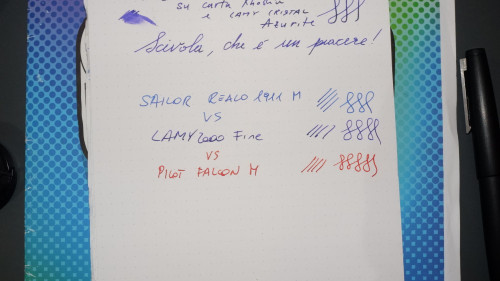 su carta Rhodia
e LAMY CRISTAL
Azurite
Scivola, che è un piacere!
SAILOR REALO 1911 M
VS
LAMY 2000 Fine
VS
PILOT FALCON M